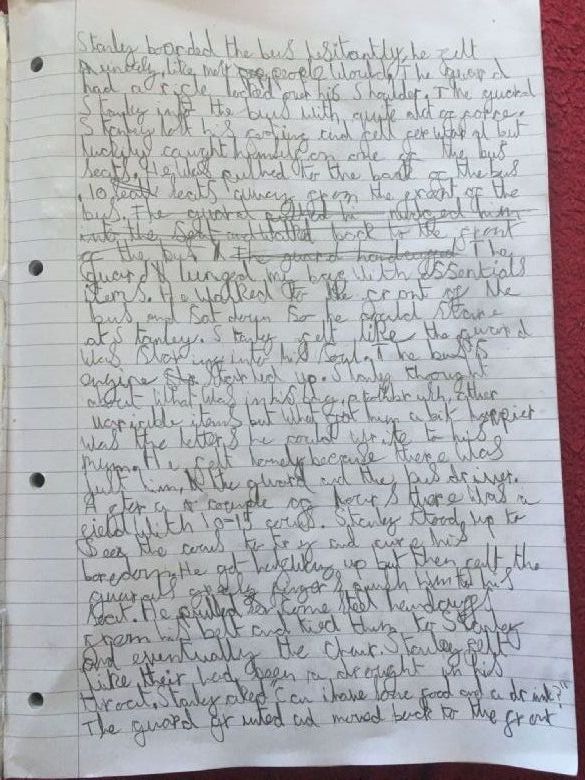 Stanley boarded the bus hesitantly, he felt
like most people would. The guard
had a rifle locked over his shoulder. The guard
Stanley into the bus with quite a lot of force.
Stanley lost his footing and fell but
luckily caught himself on one of the bus
seats. He was pushed to the back of the bus
10 seats away from the front of the
bus. The guard him
into the seat and walked back to the front
of the bus The guard handcuffed The
guard lunged my bag with essential
items. He walked to the front of the
bus and sat down so he could stare
at Stanley. Stanley felt like the guard
was staring into his soul. The bus's
engine started up. Stanley thought
about what was in his bag, a toothbrush, other
items but what got him a bit happier
was the letters he could write to his
mum. He felt lonely because there was
just him, the guard and the bus driver.
After a couple of hours there was a
field with 10-15 cows. Stanley stood up to
see the cows to try and cure his
boredom. He got up but then felt the
guard's fingers push him to his
seat. He pulled some steel handcuffs
from his belt and tied them to Stanley
and eventually the chair. Stanley felt
like their had been a drought in his
throat. Stanley asked "Can i have some food and a drink?"
The guard grunted and moved back to the front